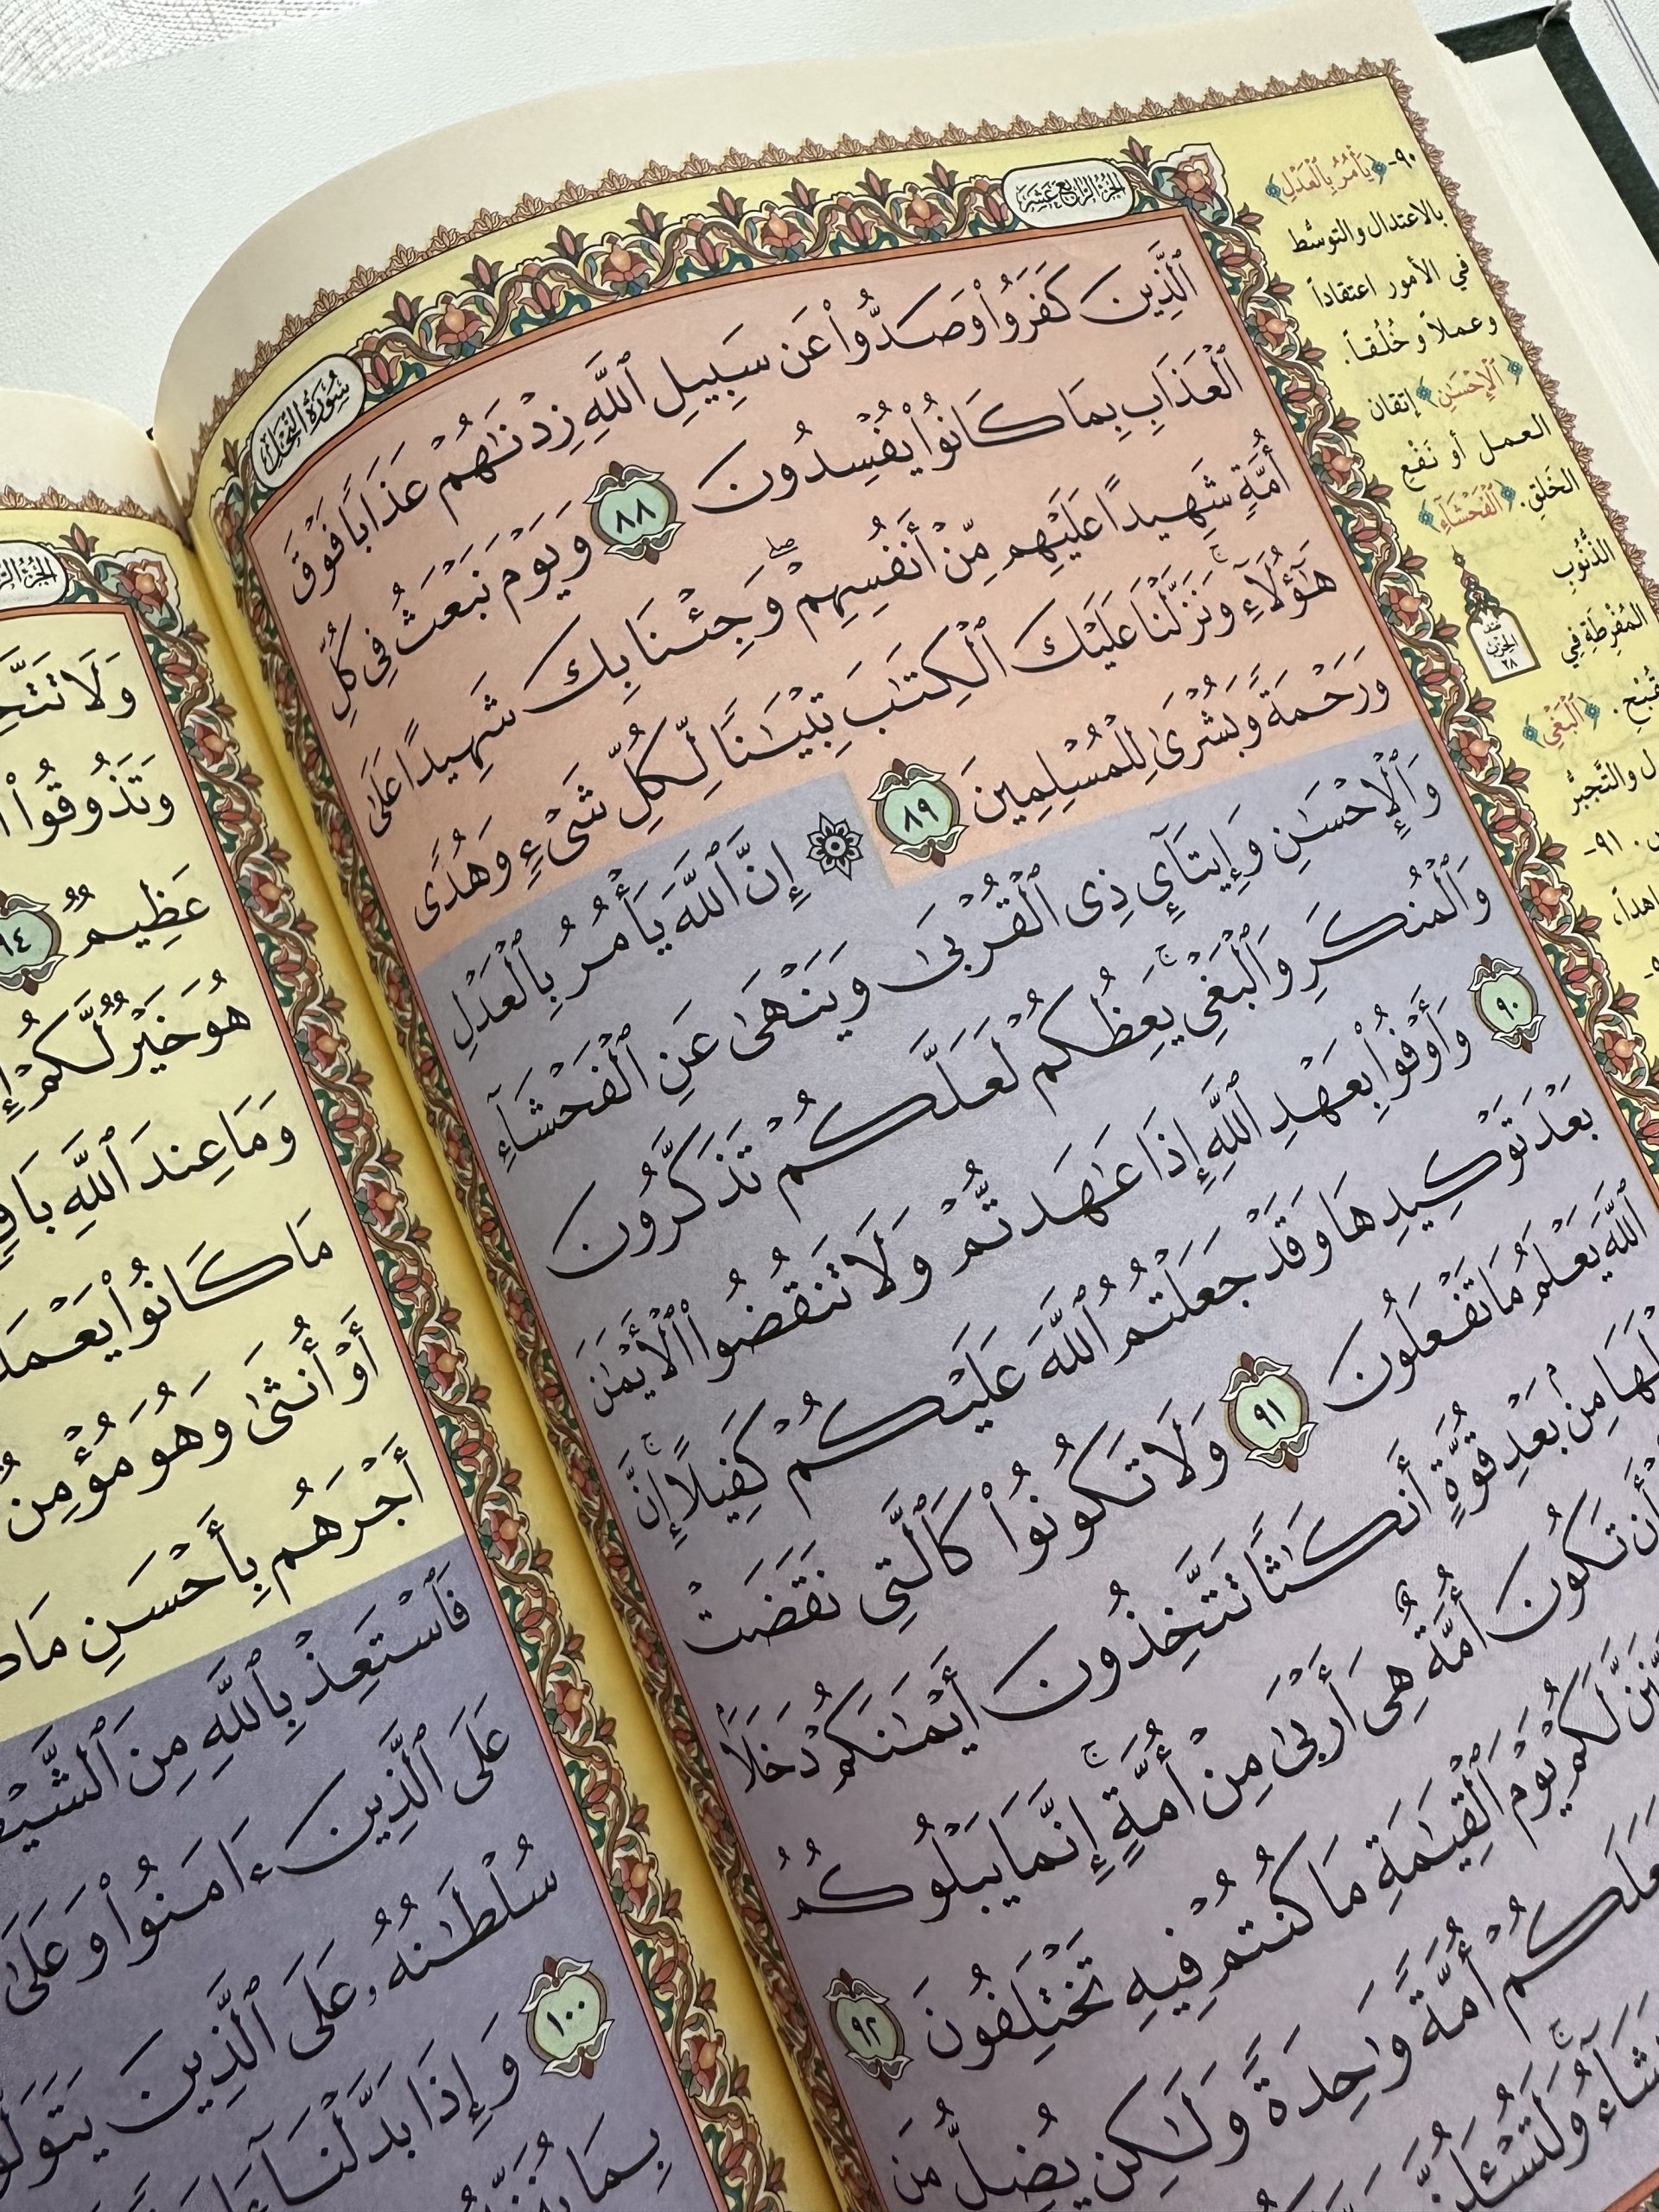 الجزء الرابع عشر
سورة النحل
ٱلَّذِينَ كَفَرُوا۟ وَصَدُّوا۟ عَن سَبِيلِ ٱللَّهِ زِدْنَـٰهُمْ عَذَابًا فَوْقَ
ٱلْعَذَابِ بِمَا كَانُوا۟ يُفْسِدُونَ ٨٨ وَيَوْمَ نَبْعَثُ فِى كُلِّ
أُمَّةٍ شَهِيدًا عَلَيْهِم مِّنْ أَنفُسِهِمْ ۖ وَجِئْنَا بِكَ شَهِيدًا عَلَىٰ
هَـٰٓؤُلَآءِ ۚ وَنَزَّلْنَا عَلَيْكَ ٱلْكِتَـٰبَ تِبْيَـٰنًا لِّكُلِّ شَىْءٍ وَهُدًى
وَرَحْمَةً وَبُشْرَىٰ لِلْمُسْلِمِينَ ٨٩ ۞ إِنَّ ٱللَّهَ يَأْمُرُ بِٱلْعَدْلِ
وَٱلْإِحْسَـٰنِ وَإِيتَآئِ ذِى ٱلْقُرْبَىٰ وَيَنْهَىٰ عَنِ ٱلْفَحْشَآءِ
وَٱلْمُنكَرِ وَٱلْبَغْىِ ۚ يَعِظُكُمْ لَعَلَّكُمْ تَذَكَّرُونَ
٩٠ وَأَوْفُوا۟ بِعَهْدِ ٱللَّهِ إِذَا عَـٰهَدتُّمْ وَلَا تَنقُضُوا۟ ٱلْأَيْمَـٰنَ
بَعْدَ تَوْكِيدِهَا وَقَدْ جَعَلْتُمُ ٱللَّهَ عَلَيْكُمْ كَفِيلًا ۚ إِنَّ
ٱللَّهَ يَعْلَمُ مَا تَفْعَلُونَ ٩١ وَلَا تَكُونُوا۟ كَٱلَّتِى نَقَضَتْ
مِنۢ بَعْدِ قُوَّةٍ أَنكَـٰثًا تَتَّخِذُونَ أَيْمَـٰنَكُمْ دَخَلًۢا
أَن تَكُونَ أُمَّةٌ هِىَ أَرْبَىٰ مِنْ أُمَّةٍ ۚ إِنَّمَا يَبْلُوكُمُ
لَكُمْ يَوْمَ ٱلْقِيَـٰمَةِ مَا كُنتُمْ فِيهِ تَخْتَلِفُونَ
٩٢ أُمَّةً وَٰحِدَةً وَلَـٰكِن يُضِلُّ مَن
وَلَتُسْـَٔلُنَّ
٩٠- ﴿يَأْمُرُ بِٱلْعَدْلِ﴾
بالاعتدال والتوسّط
في الأمور اعتقاداً
وعملاً وخُلُقاً.
﴿ٱلْإِحْسَـٰنِ﴾ إتقان
العمل أو نَفْعِ
الخَلقِ. ﴿ٱلْفَحْشَآءِ﴾
الذُّنُوبِ
المُفْرِطَةِ فِي
﴿ٱلْبَغْىِ﴾
والتَّجبُّر
٩١-
الحزب
٢٨
وَتَذُوقُوا۟
عَظِيمٌ ٩٤
هُوَ خَيْرٌ لَّكُمْ
وَمَا عِندَ ٱللَّهِ
مَا كَانُوا۟
أَوْ أُنثَىٰ وَهُوَ مُؤْمِنٌ
أَجْرَهُم بِأَحْسَنِ
فَٱسْتَعِذْ بِٱللَّهِ مِنَ
عَلَى ٱلَّذِينَ ءَامَنُوا۟ وَعَلَىٰ
سُلْطَـٰنُهُۥ عَلَى ٱلَّذِينَ
١٠٠ وَإِذَا بَدَّلْنَآ
بِمَا